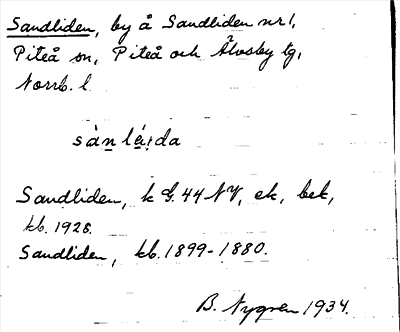 Sandliden, by å Sandliden nr 1,
Piteå sn, Piteå och Älvsby tg,
Norrb. l.
sàn láida
Sandliden, k G.44 NV, ek, bek,
kb. 1928.
Sandliden, kb. 1899-1880.
B. Nygren 1934.